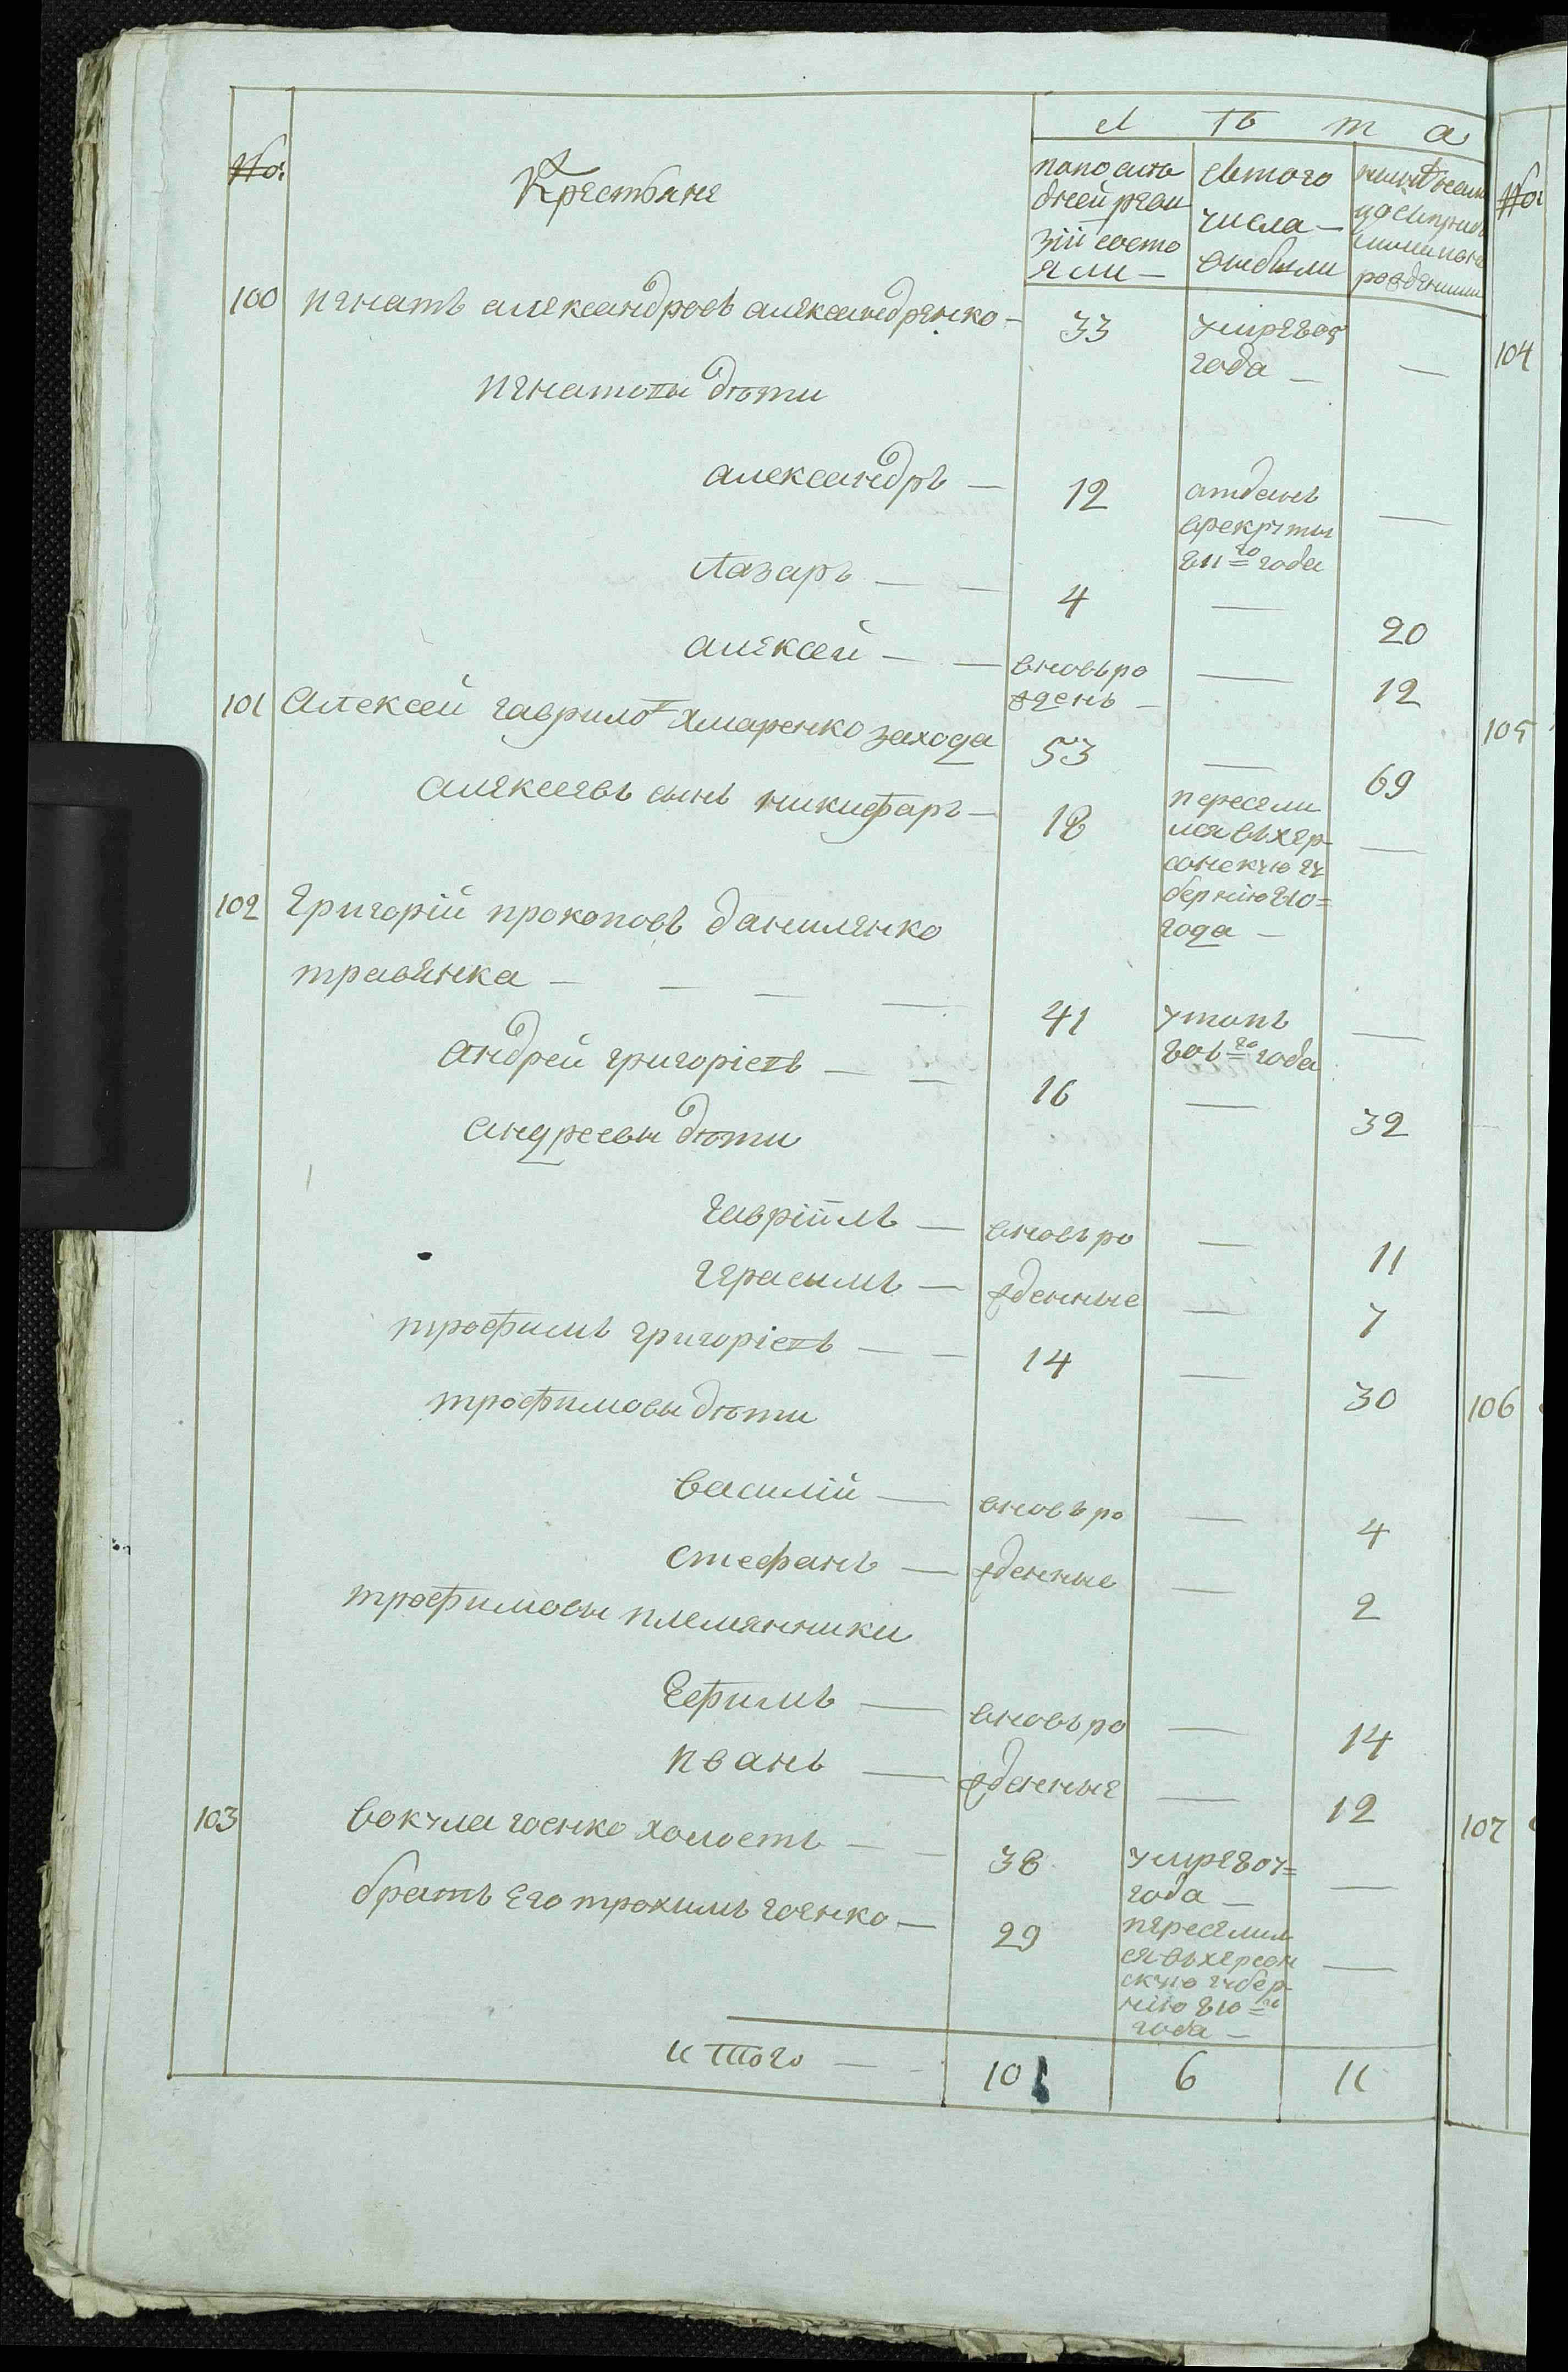 Л ѣ т а
№
Крестьяне
попослѣ
дней реви
зіи состо
яли —
Изтого
числа —
выбыли
100 игнатъ александровъ александренко — 33 умре 805 года — —
игнатовы дѣти
александръ — 12 атданъ врекруты 811го года —
Лазаръ — — 4 — 20
алексей — — вновьро жденъ — — 12
101 Алексей гавриловъ хмаренко захода 53 — 69
алексеевъ сынъ никифаръ — 18 пересели лся въ хер сонскую гу бернію 810= года — —
102 Григорій прокоповъ данилянко
травянка — — — — 41 утопъ 806го года —
андрей григоріевъ — — 16 — 32
андреевы дѣти
гавріилъ — вновь ро — 11
герасимъ — жденные — 7
трофимъ григоріевъ — — 14 — 30
трофимовы дѣти
василій — вновь ро — 4
стефанъ — жденные — 2
трофимовы племянники
Ефимъ — вновьро — 14
иванъ — жденные — 12
103 вокула гоенко холостъ — — 38 умре 807= года — —
братъ Его трохимъ гоенко — 29 переселил ся въ херсон скую губер нію 810го года — —
итого — — 10 6 11
№
104
105
106
107